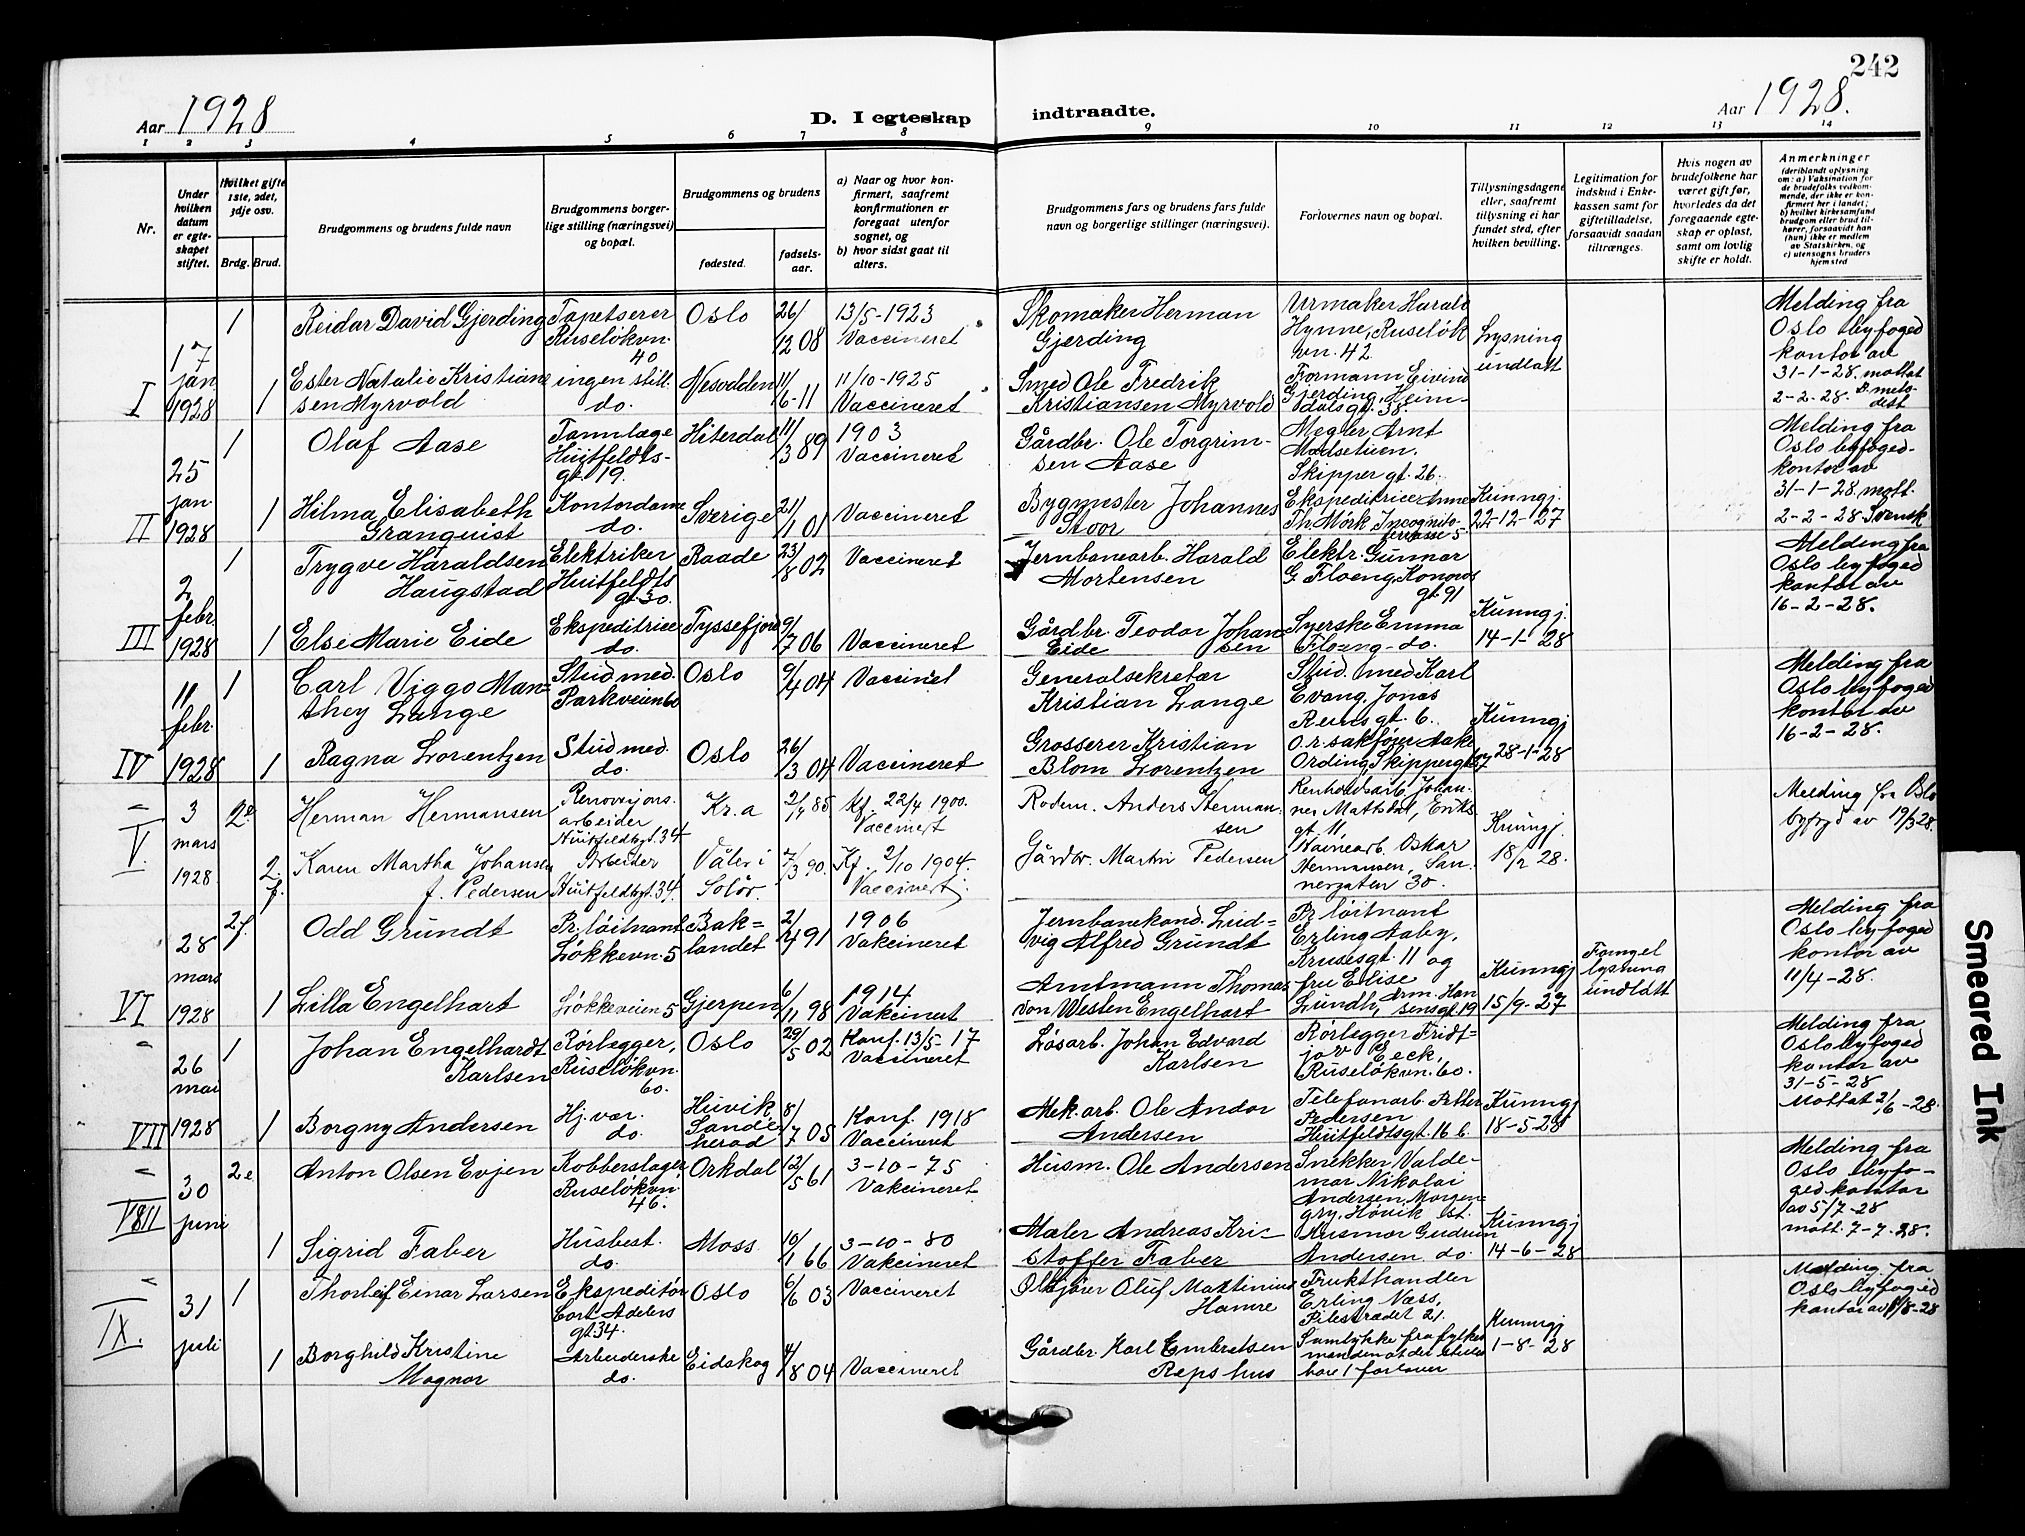 242
Aar 1928
D. I egteskap
indtraadte.
Aar 1928.
1 2 3 4 5 6 7 8 9 10 11 12 13 14
Nr.
Under
hvilken
datum
er egte-
skapet
stiftet.
Hvilket gifte
1ste, 2det,
3dje osv.
Brdg. Brud.
Brudgommens og brudens fulde navn
Brudgommens borger-
lige stilling (næringsvei)
og bopæl.
Brudgommens og brudens
fødested.
fødsels-
aar.
a) Naar og hvor kon-
firmert, saafremt
konfirmationen er
foregaat utenfor
sognet, og
b) hvor sidst gaat til
alters.
Brudgommens fars og brudens fars fulde
navn og borgerlige stillinger (næringsvei).
Forlovernes navn og bopæl.
Tillysningsdagene
eller, saafremt
tillysning ei har
fundet sted, efter
hvilken bevilling.
Legitimation for
indskud i Enke-
kassen samt for
giftetilladelse,
forsaavidt saadan
tiltrænges.
Hvis nogen av
brudefolkene har
været gift før,
hvorledes da det
foregaaende egte-
skap er opløst,
samt om lovlig
skifte er holdt.
Anmerkninger
(deriblandt oplysning
om: a) Vaksination for
de brudefolks vedkom-
mende, der ikke er kon-
firmert her i landet;
b) hvilket kirkesamfund
brudgom eller brud til-
hører, forsaavidt han
(hun) ikke er medlem
av Statskirken, og
c) utensogns bruders
hjemsted
I
17
jan
1928
1
Reidar David Gjerding
Tapetserer
Ruseløkvn.
40
Oslo
26/12 08
13/5-1923
Vaccineret
Skomaker Herman
Gjerding
Urmaker Harald
Hynne, Ruseløk
vn. 42
Lysning
undlatt
Melding fra
Oslo byfoged
kontor av
31-1-28. mottat
2-2-28.
1
Ester Natalie Kristian
sen Myrvold
ingen still.
do.
Nesodden
11/6-11
11/10-1925
Vaccineret
Smed Ole Fredrik
Kristiansen Myrvold
Formann Eivind
Gjerding, Heim-
dalsgt. 38.
II
25
jan.
1928
1
Olaf Aase
Tannlæge
Huitfeldts-
gt. 19.
Hiterdal
11/3 89
1903
Vaccineret
Gårdbr. Ole Torgrim-
sen Aase
Megler Arnt
Madseluen.
Skipper gt. 26.
Melding fra
Oslo byfoged-
kontor av
31-1-28. mott.
2-2-28. Svensk
1
Hilma Elisabeth
Granquist
Kontordame
do.
Sverige
21/1 01
Vaccineret
Bygmester Johannes
Stoor
Ekspeditrice Anne
Th. Mørk, Incognito-
terrasse 5
Kunngj.
22-12-27
III
2
febr.
1928
1
Trygve Haraldsen
Haugstad
Elektriker
Huitfeldts
gt. 30.
Raade
23/8 02
Vaccineret
Jernbanearb. Harald
Mortensen
Elektr. Gunnar
G. Floeng, Konows
gt. 91
Melding fra
Oslo byfoged
kontor av
16-2-28.
1
Else Marie Eide
Ekspeditrice
do.
Tyssefjord
9/7 06
Vaccineret
Gårdbr. Teodor Johan
Eide sen
Syerske Emma
Floeng - do.
Kunngj.
14-1-28
IV
11
febr.
1928
1
Carl Viggo Man=
they Lange
Stud med.
Parkveien 60
Oslo
9/4 04
Vaccinet
Generalsekretær
Kristian Lange
Stud. med Karl
Evang, Jonas
Reinsgt. 6.
Kunngj
28-1-28
Melding fra
Oslo byfoged
kontor av
16-2-28.
1
Ragna Lorentzen
Stud med.
do.
Oslo
26/3 04
Vaccineret
Grosserer Kristian
Blom Lorentzen
O.r. sakfører Aake
Ording, Skippergt. 67
V.
3
mars
1928
2e.
Herman Hermansen
Renovasjons.
arbeider
Huitfeldtsgt. 34
Kr.a
Kf. 22/4 1900.
Vaccinert
Rodem. Anders Herman-
sen
Renholdsarb. Johan-
nes Mattsdal, Eriks
gt. 11,
Kunngj.
18/2 28.
Melding fra Oslo
byfogd av 19/3 28.
2.
f.
Karen Martha Johansen
f. Pedersen
Arbeider
Huitfeldtsgt. 34.
Våler i
Solør.
7/3 90.
Kf. 2/10 1904.
Vaccinert.
Gårdbr. Martin Pedersen
Oskar
Hermansen, San-
nergaten 30.
VI
28
mars
1928
2f.
Odd Grundt
Pr. løitnant
Løkkevn. 5
Bak=
landet
2/4 91
1906
Vakcineret
Jernbanekond. Lud=
vig Alfred Grundt
Pr løitnant
Erling Aaby,
Krusesgt. 11 og
Melding fra
Oslo byfoged
kontor av
11/4-28.
1
Lilla Engelhart
Løkkeveien 5
Gjerpen
6/11 98
1914
Vakcinert
Amtmann Thomas
von Westen Engelhart
fru Elise
Lundh, Arm. Han
sensgt. 19
Kunngj
15/9-27
Fornyet
lysning
undlatt
VII
26
mai
1928
1
Johan Engelhardt
Karlsen
Rørlegger,
Ruseløkvn.
60.
Oslo
29/5 02
Konf. 13/5-17
Vaccineret
Løsarb. Johan Edvard
Karlsen
Rørlegger Fridt=
jov Eeck,
Ruseløkvn. 60.
Melding fra
Oslo byfoged
kontor av
31-5-28
Mottat 2/6-28.
1
Borgny Andersen
Hj. vær.
do.
Huvik
Sande
herad
8/7 05
Konf. 1918
Vaccineret
Mek. arb. Ole Andor
Andersen
Telefonarb. Petter
Pedersen
Huitfeldtsgt. 16 b.
Kunngj
18-5-28
VIII
30
juni
2e
Anton Olsen Evjen
Kobberslager,
Ruseløkvn
46.
Orkdal
12/5 61
3-10-75
Vakcineret
Husm. Ole Andersen
Snekker Valde-
mar Nikolai
Andersen, Morgen=
gry, Høvik st.
Melding fra
Oslo byfo-
ged kontor
av 5/7-28
mott. 7-7-28.
1
Sigrid Faber
Husbest.
do.
Moss
10/1 66
3-10-80
Vakcineret
Maler Andreas Kri-
stoffer Faber
Husmor Gudrun
Andersen do.
Kunngj
14-6-28
IX.
31
juli
1
Thorleif Einar Larsen
Ekspeditør
Cort Adelers
gt. 34.
Oslo
6/6 03
Vaccineret
Oluf Martinius
Hamre
Frukthandler
Erling Næss,
Pilestrædet 21.
Kunngj
1-8-28
Melding fra
Oslo byfoged
kontor av /8-28
1
Borghild Kristine
Magnor
Arbeiderske
do.
Eidskog
4/8 04
Vaccineret
Gårdbr. Karl Embretsen
Repshus
Samtykke fra fylkes
mannen at der
bare 1 forlover
Smeared Ink